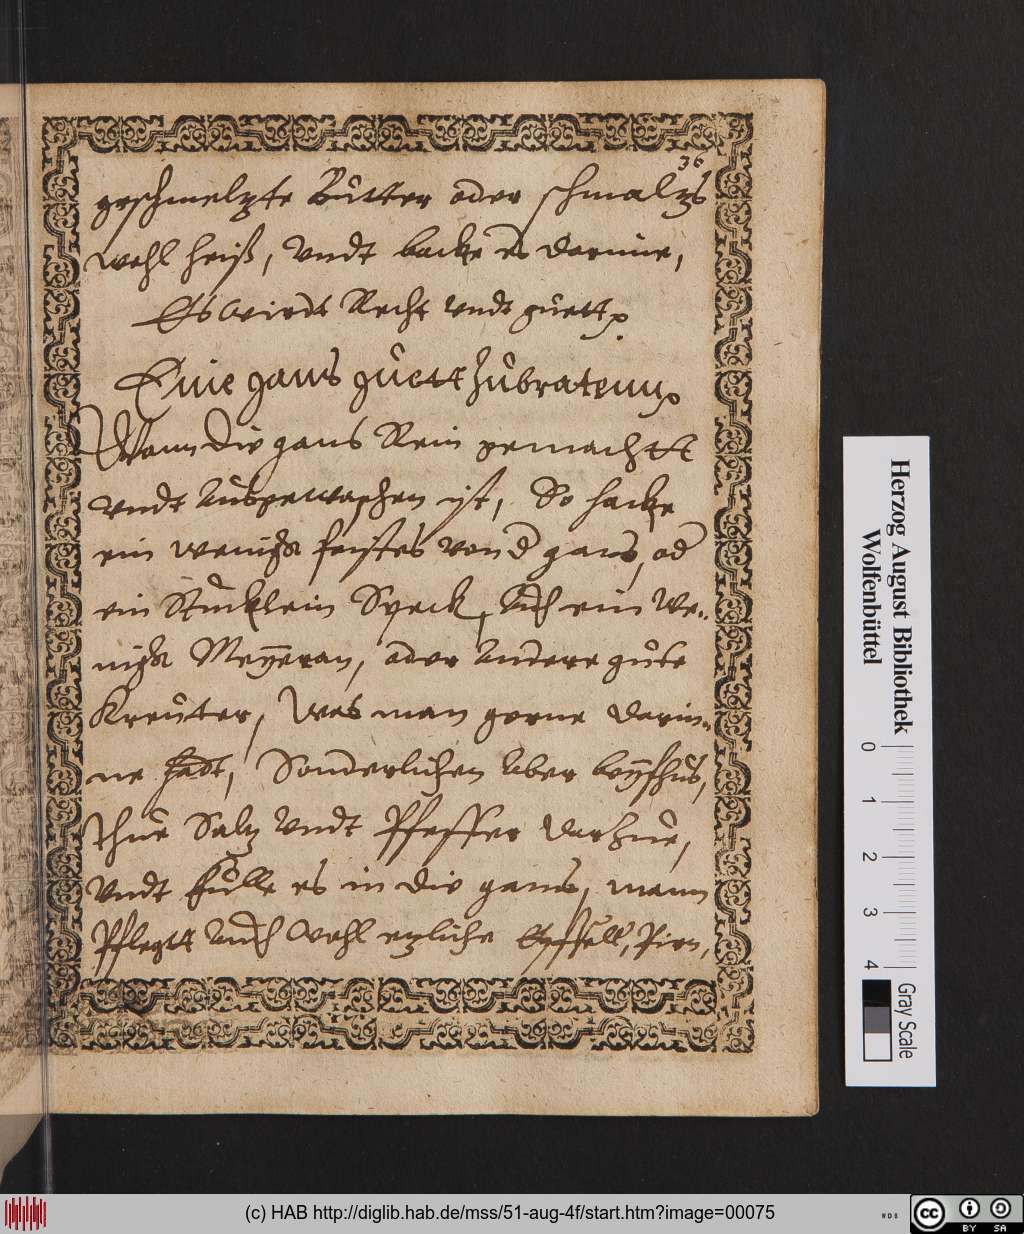 36
geschmelzte Butter oder schmaltz
wohl heiß, Vndt backe es darinne,
Es Wirdt Recht vndt guett.
Eine gans guett Zubratenn.
Wann die gans Rein gemachtt
vndt ausgewaschen ist, So hacke
ein wenigk feistes von d gans, od
ein Stucklein Speck, Auch ein We-
nigk Meyeran, oder andere gute
Kreuter, Was man gerne darin-
ne hadt, Sonderlichen aber beyfhus,
thue Saltz Vndt Pfeffer darzue,
Vndt fulle es in die gans, mann
Pflegtt Auch Wohl ezliche Epffell, Pirn,
Herzog August Bibliothek
Wolfenbüttel
0 1 2 3 4
Gray Scale
(c) HAB http://diglib.hab.de/mss/51-aug-4f/start.htm?image=00075
WDB
cc BY SA